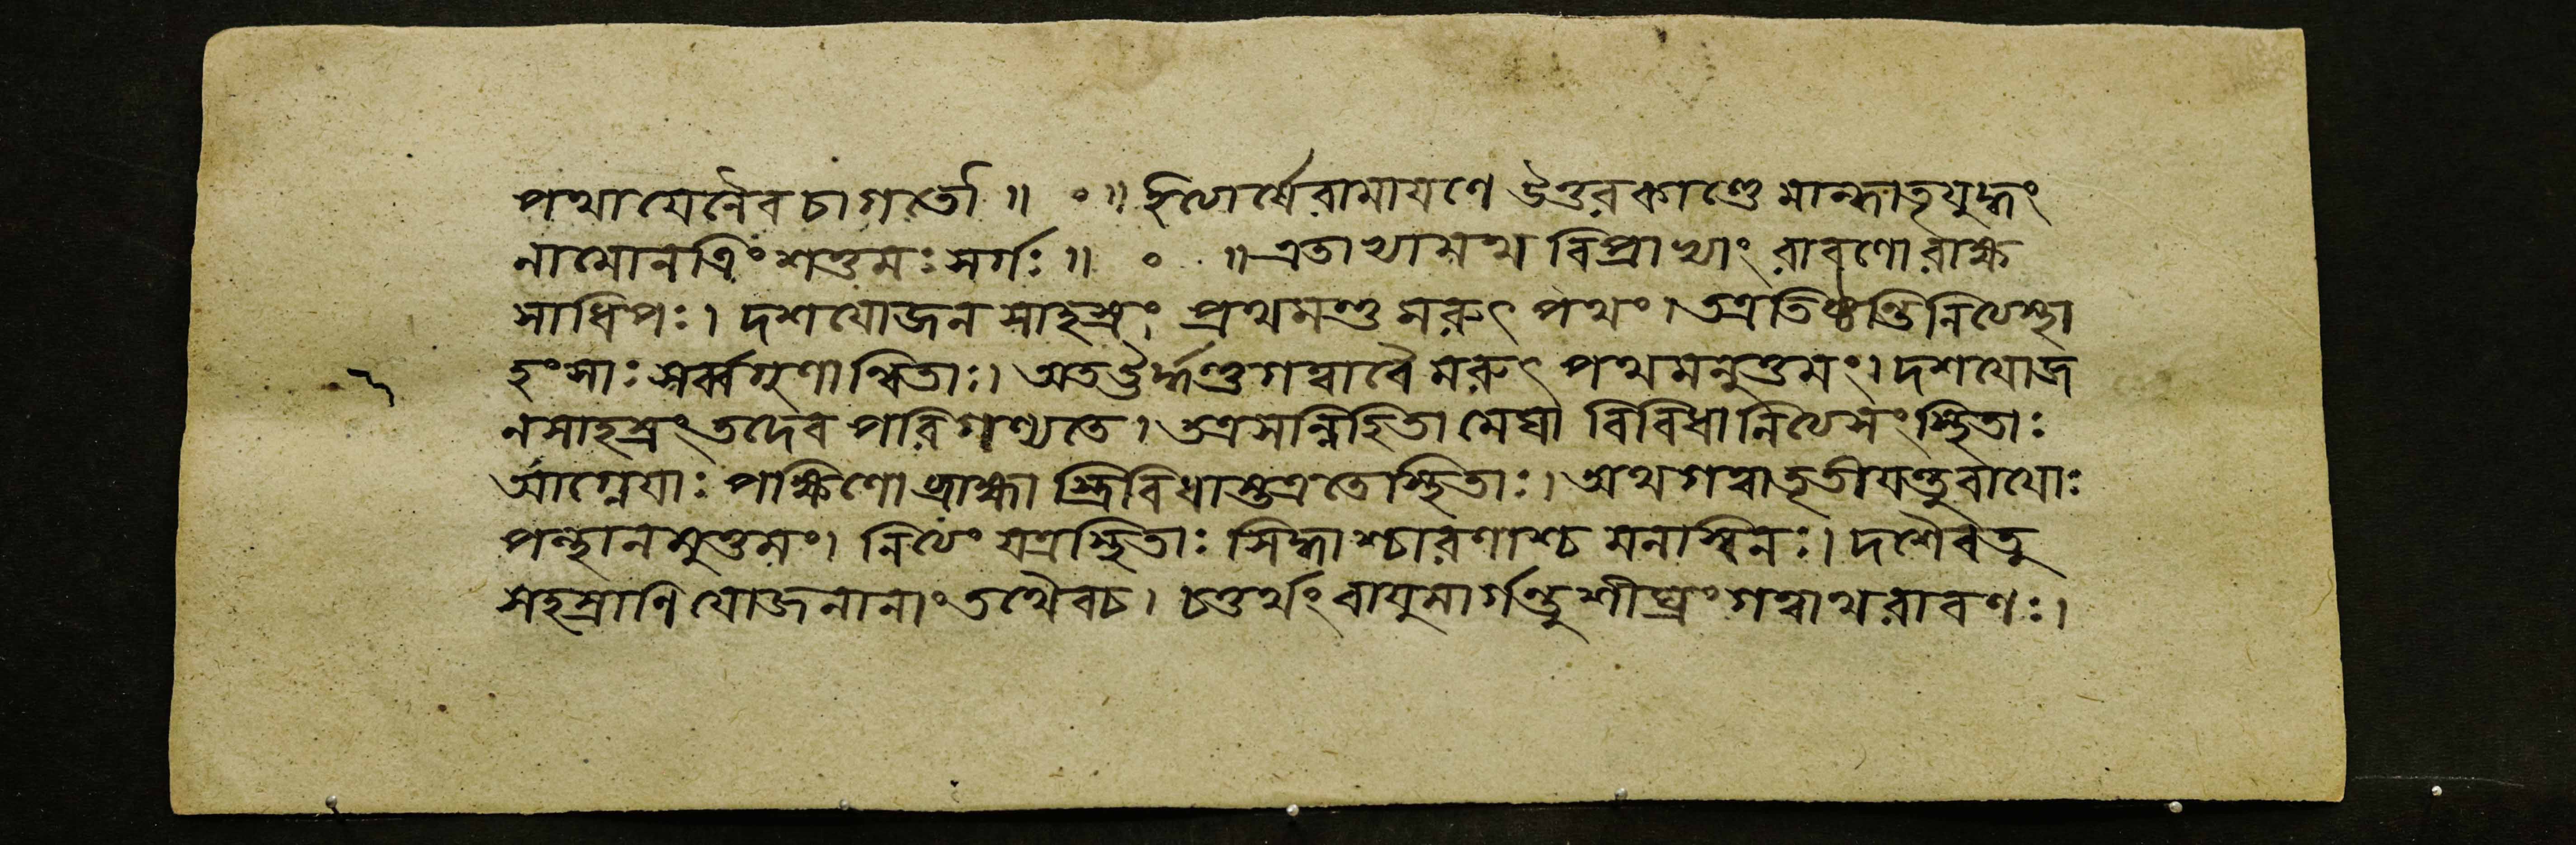 পথা যেনৈব চাগতৌ ॥ ॰ ॥ ইত্যার্ষে রামায়ণে উত্তরকাণ্ডে মান্ধাতৃযুদ্ধং
নামোনত্রিংশত্তমঃ সর্গঃ ॥ ॰ ॥ এতাভ্যামথ বিপ্রাভ্যাং রাবণো রাক্ষ
সাধিপঃ। দশযোজনসাহস্রং প্রথমন্তু মরুৎপথং। তত্র তিষ্ঠন্তি নিত্যস্থা
হংসাঃ সর্ব্বগুণান্বিতাঃ। অতঊর্দ্ধন্তু গত্বা বৈ মরুৎপথমনুত্তমং। দশযোজ
নসাহস্রং তদেব পরিগণ্যতে। তত্র সন্নিহিতা মেঘা ত্রিবিধা নিত্যসংস্থিতাঃ
আগ্নেয়াঃ পক্ষিণো ব্রাহ্মা স্ত্রিবিধাস্তত্র তে স্থিতাঃ। অথ গত্বা তৃতীয়ন্তু বায়োঃ
পন্থানমুত্তমং। নিত্যং যত্র স্থিতাঃ সিদ্ধাশ্চারণাশ্চ মনস্বিনঃ। দশৈব তু
সহস্রাণি যোজনানাং তথৈব চ। চতুর্থং বায়ুমার্গন্তু শীঘ্রং গত্বাথ রাবণঃ।